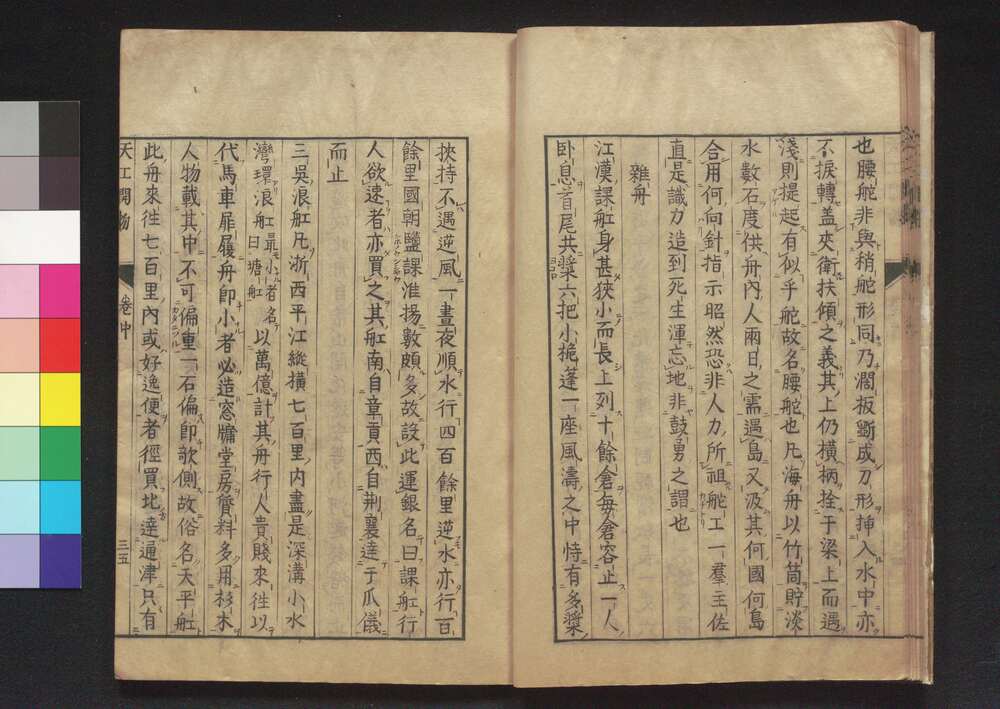 也腰舵非與稍舵形同乃濶板斲成刀形挿入水中亦
不捩轉蓋夾衛扶傾之義其上仍橫柄拴于梁上而遇
淺則提起有似乎舵故名腰舵也凡海舟以竹筒貯淡
水數石度供舟內人兩日之需遇島又汲其何國何島
合用何向針指示昭然恐非人力所祖舵工一羣主佐
直是識力造到死生渾忘地非鼓勇之謂也
雜舟
江漢課舡身甚狹小而長上列十餘倉每倉容止一人
卧息首尾共槳六把小桅蓬一座風濤之中恃有多槳
挾持不遇逆風一晝夜順水行四百餘里逆水亦行百
餘里國朝鹽課淮揚數頗多故設此運銀名曰課舡行
人欲速者亦買之其舡南自章貢西自荆襄達于瓜儀
而止
三吳浪舡凡浙西平江縱橫七百里內盡是深溝小水
灣環浪舡最小者名曰塘舡以萬億計其舟行人貴賤來徃以
代馬車扉履舟即小者必造窓牖堂房質料多用杉木
人物載其中不可偏重一石偏即欹側故俗名天平舡
此舟來徃七百里內或好逸便者徑買北達通津只有
天工開物 卷中 三五